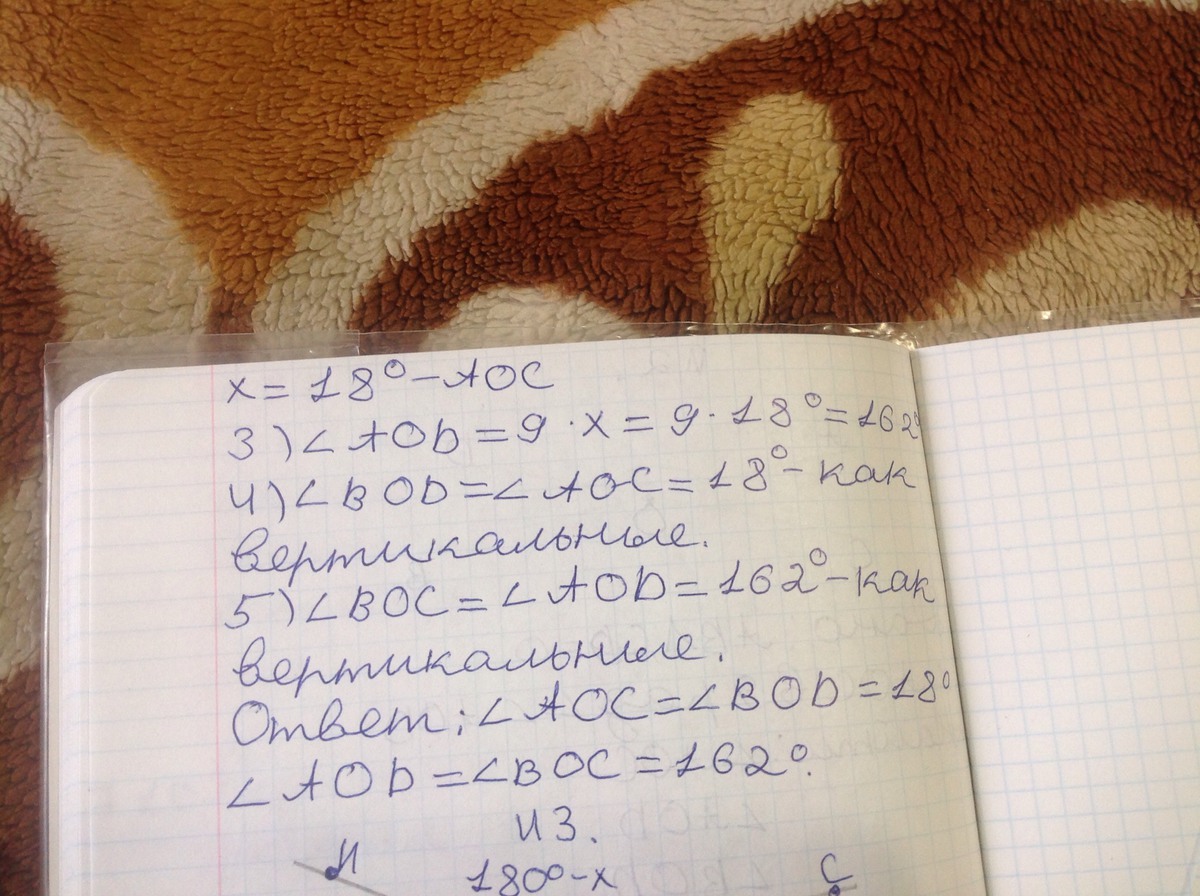 x = 18° - AOC
3) ∠AOD = 9 · x = 9 · 18° = 162°
4) ∠BOD = ∠AOC = 18° - как
вертикальные.
5) ∠BOC = ∠AOD = 162° - как
вертикальные.
Ответ: ∠AOC = ∠BOD = 18°
∠AOD = ∠BOC = 162°.
из.
M 180° - x C